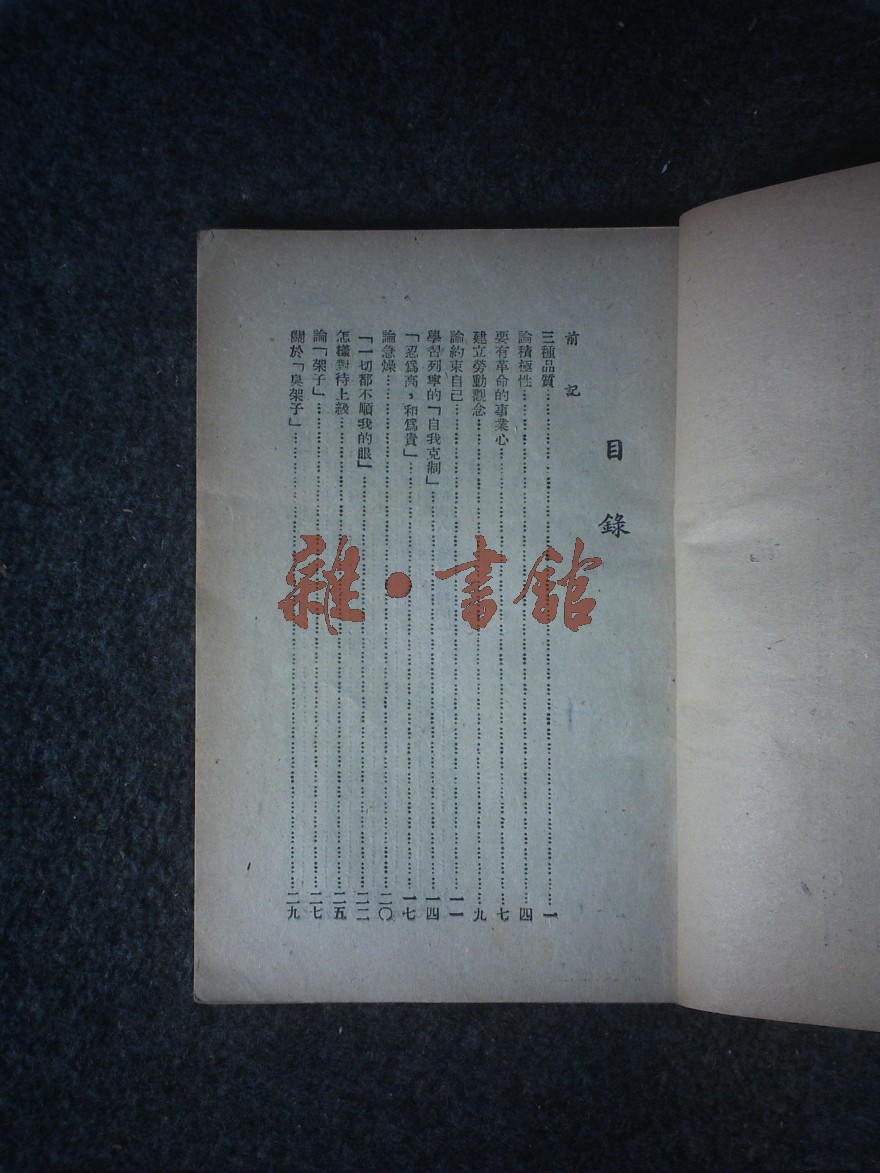 目錄
前記
三種品質⋯⋯一
論積極性⋯⋯四
要有革命的事業心⋯⋯七
建立勞動觀念⋯⋯九
論約束自己⋯⋯一一
學習列寧的「自我克制」⋯⋯一四
「忍爲高，和爲貴」⋯⋯一七
論急燥⋯⋯二〇
「一切都不順我的眼」⋯⋯二二
怎樣對待上級⋯⋯二五
論「架子」⋯⋯二七
關於「臭架子」⋯⋯二九
雜・書館